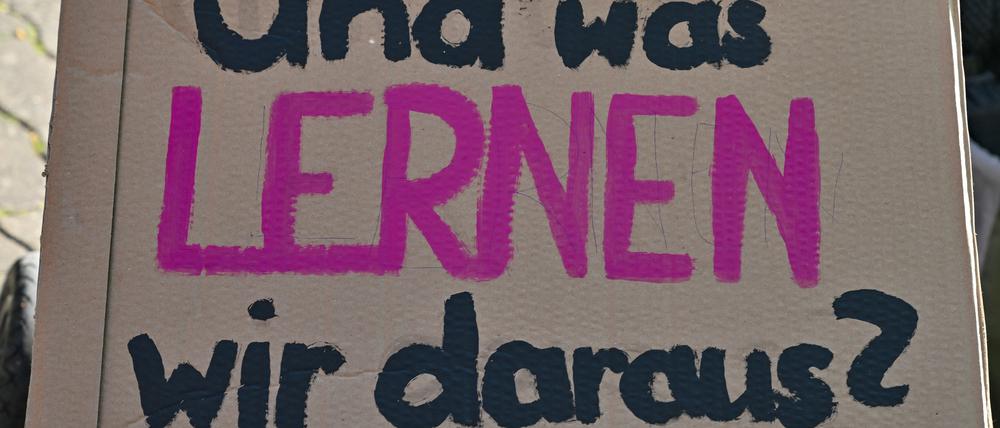 Und was
LERNEN
wir daraus?